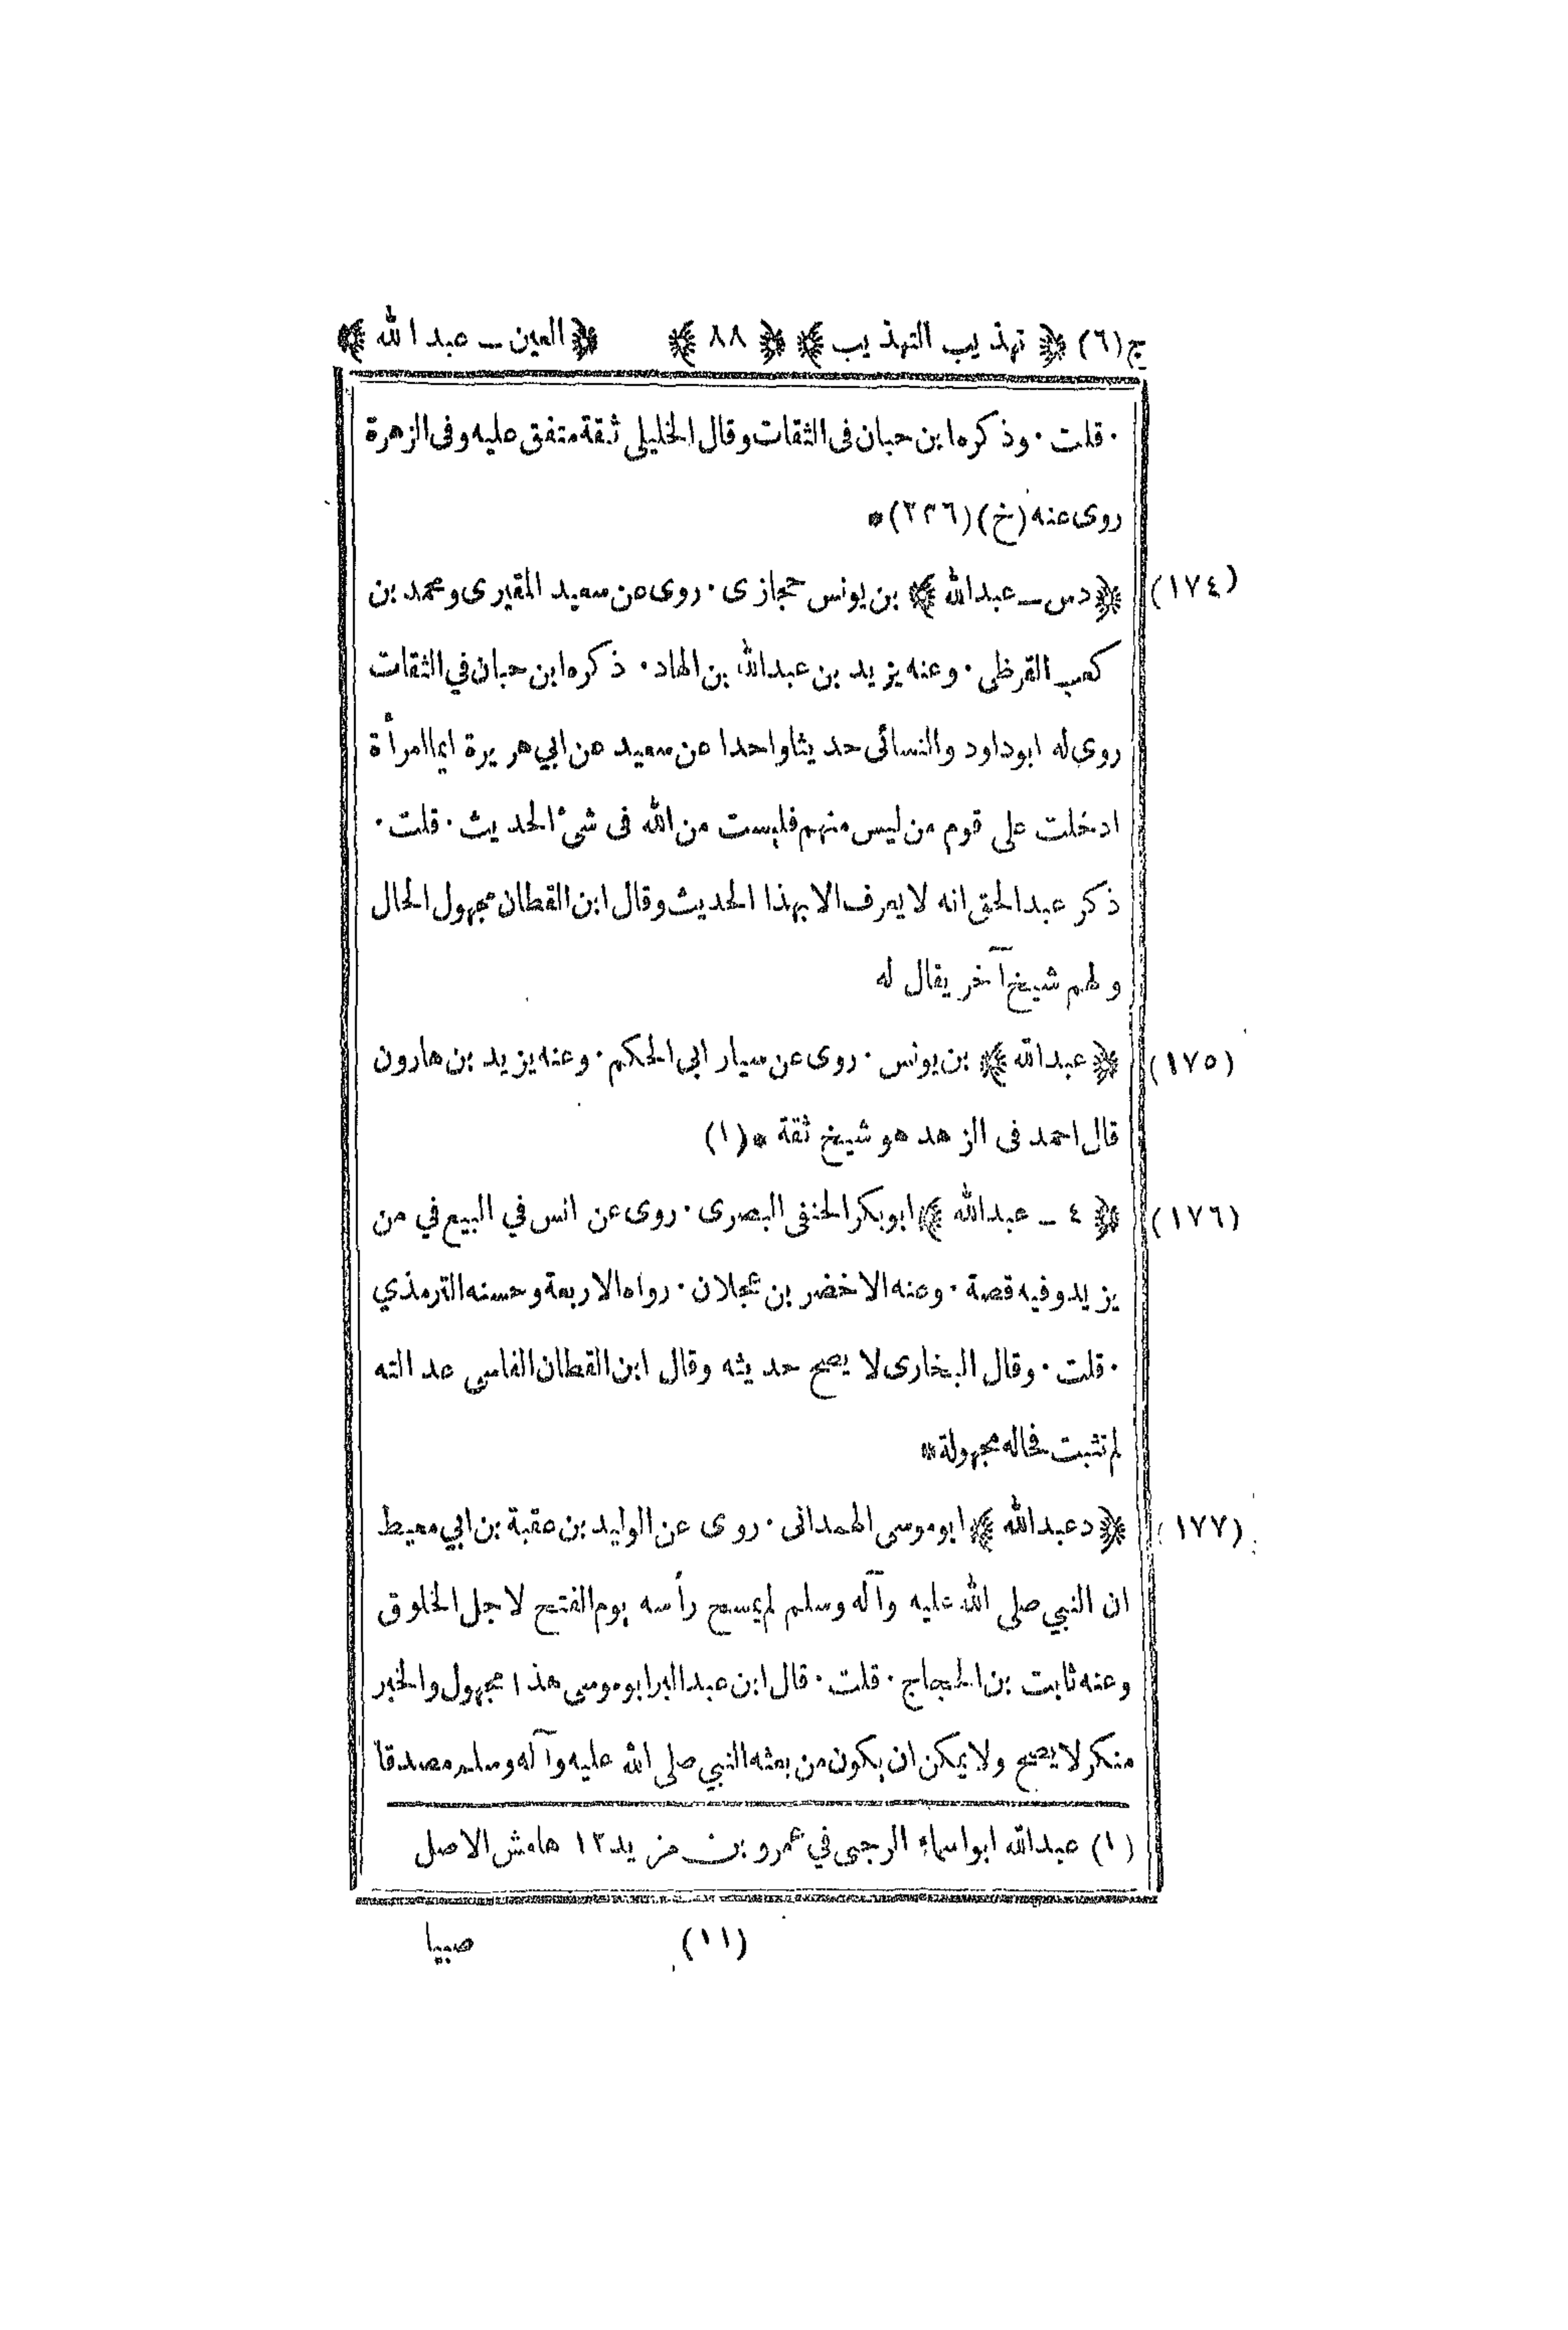 ج(٦) ﴿ تهذيب التهذيب ﴾ ﴿ ٨٨ ﴾ ﴿ العين ـ عبد الله ﴾
٠ قلت ٠ وذكره ابن حبان فى الثقات وقال الخليلى ثقة متفق عليه وفى الزهرة
روى عنه (خ) (٣٣٦) *
(١٧٤) ﴿ دس ـ عبدالله ﴾ بن يونس حجازى ٠ روى عن سعيد المقبرى ومحمد بن
كعب القرظى ٠ وعنه يزيد بن عبدالله بن الهاد ٠ ذكره ابن حبان في الثقات
روى له ابوداود والنسائى حديثا واحدا عن سعيد عن ابي هريرة ايما امرأة
ادخلت على قوم من ليس منهم فليست من الله فى شئ الحديث ٠ قلت ٠
ذكر عبدالحق انه لا يعرف الا بهذا الحديث وقال ابن القطان مجهول الحال
ولهم شيخ آخر يقال له
(١٧٥) ﴿ عبدالله ﴾ بن يونس ٠ روى عن سيار ابى الحكم ٠ وعنه يزيد بن هارون
قال احمد فى الزهد هو شيخ ثقة * (١)
(١٧٦) ﴿ ٤ ـ عبدالله ﴾ ابوبكر الحنفى البصرى ٠ روى عن انس في البيع في من
يزيد وفيه قصة ٠ وعنه الاخضر بن عجلان ٠ رواه الاربعة وحسنه الترمذي
٠ قلت ٠ وقال البخارى لا يصح حديثه وقال ابن القطان الفاسى عدالته
لم تثبت فحاله مجهولة *
(١٧٧) ﴿ د عبدالله ﴾ ابوموسى الهمدانى ٠ روى عن الوليد بن عقبة بن ابي معيط
ان النبي صلى الله عليه وآله وسلم لم يمسح رأسه يوم الفتح لاجل الخلوق
وعنه ثابت بن الحجاج ٠ قلت ٠ قال ابن عبدالبر ابوموسى هذا مجهول والخبر
منكر لا يصح ولا يمكن ان يكون من بعثه النبي صلى الله عليه وآله وسلم مصدقا
(١) عبدالله ابو اسماء الرحبى في عمرو بن مزيد ١٢ هامش الاصل
(١١) صبيا